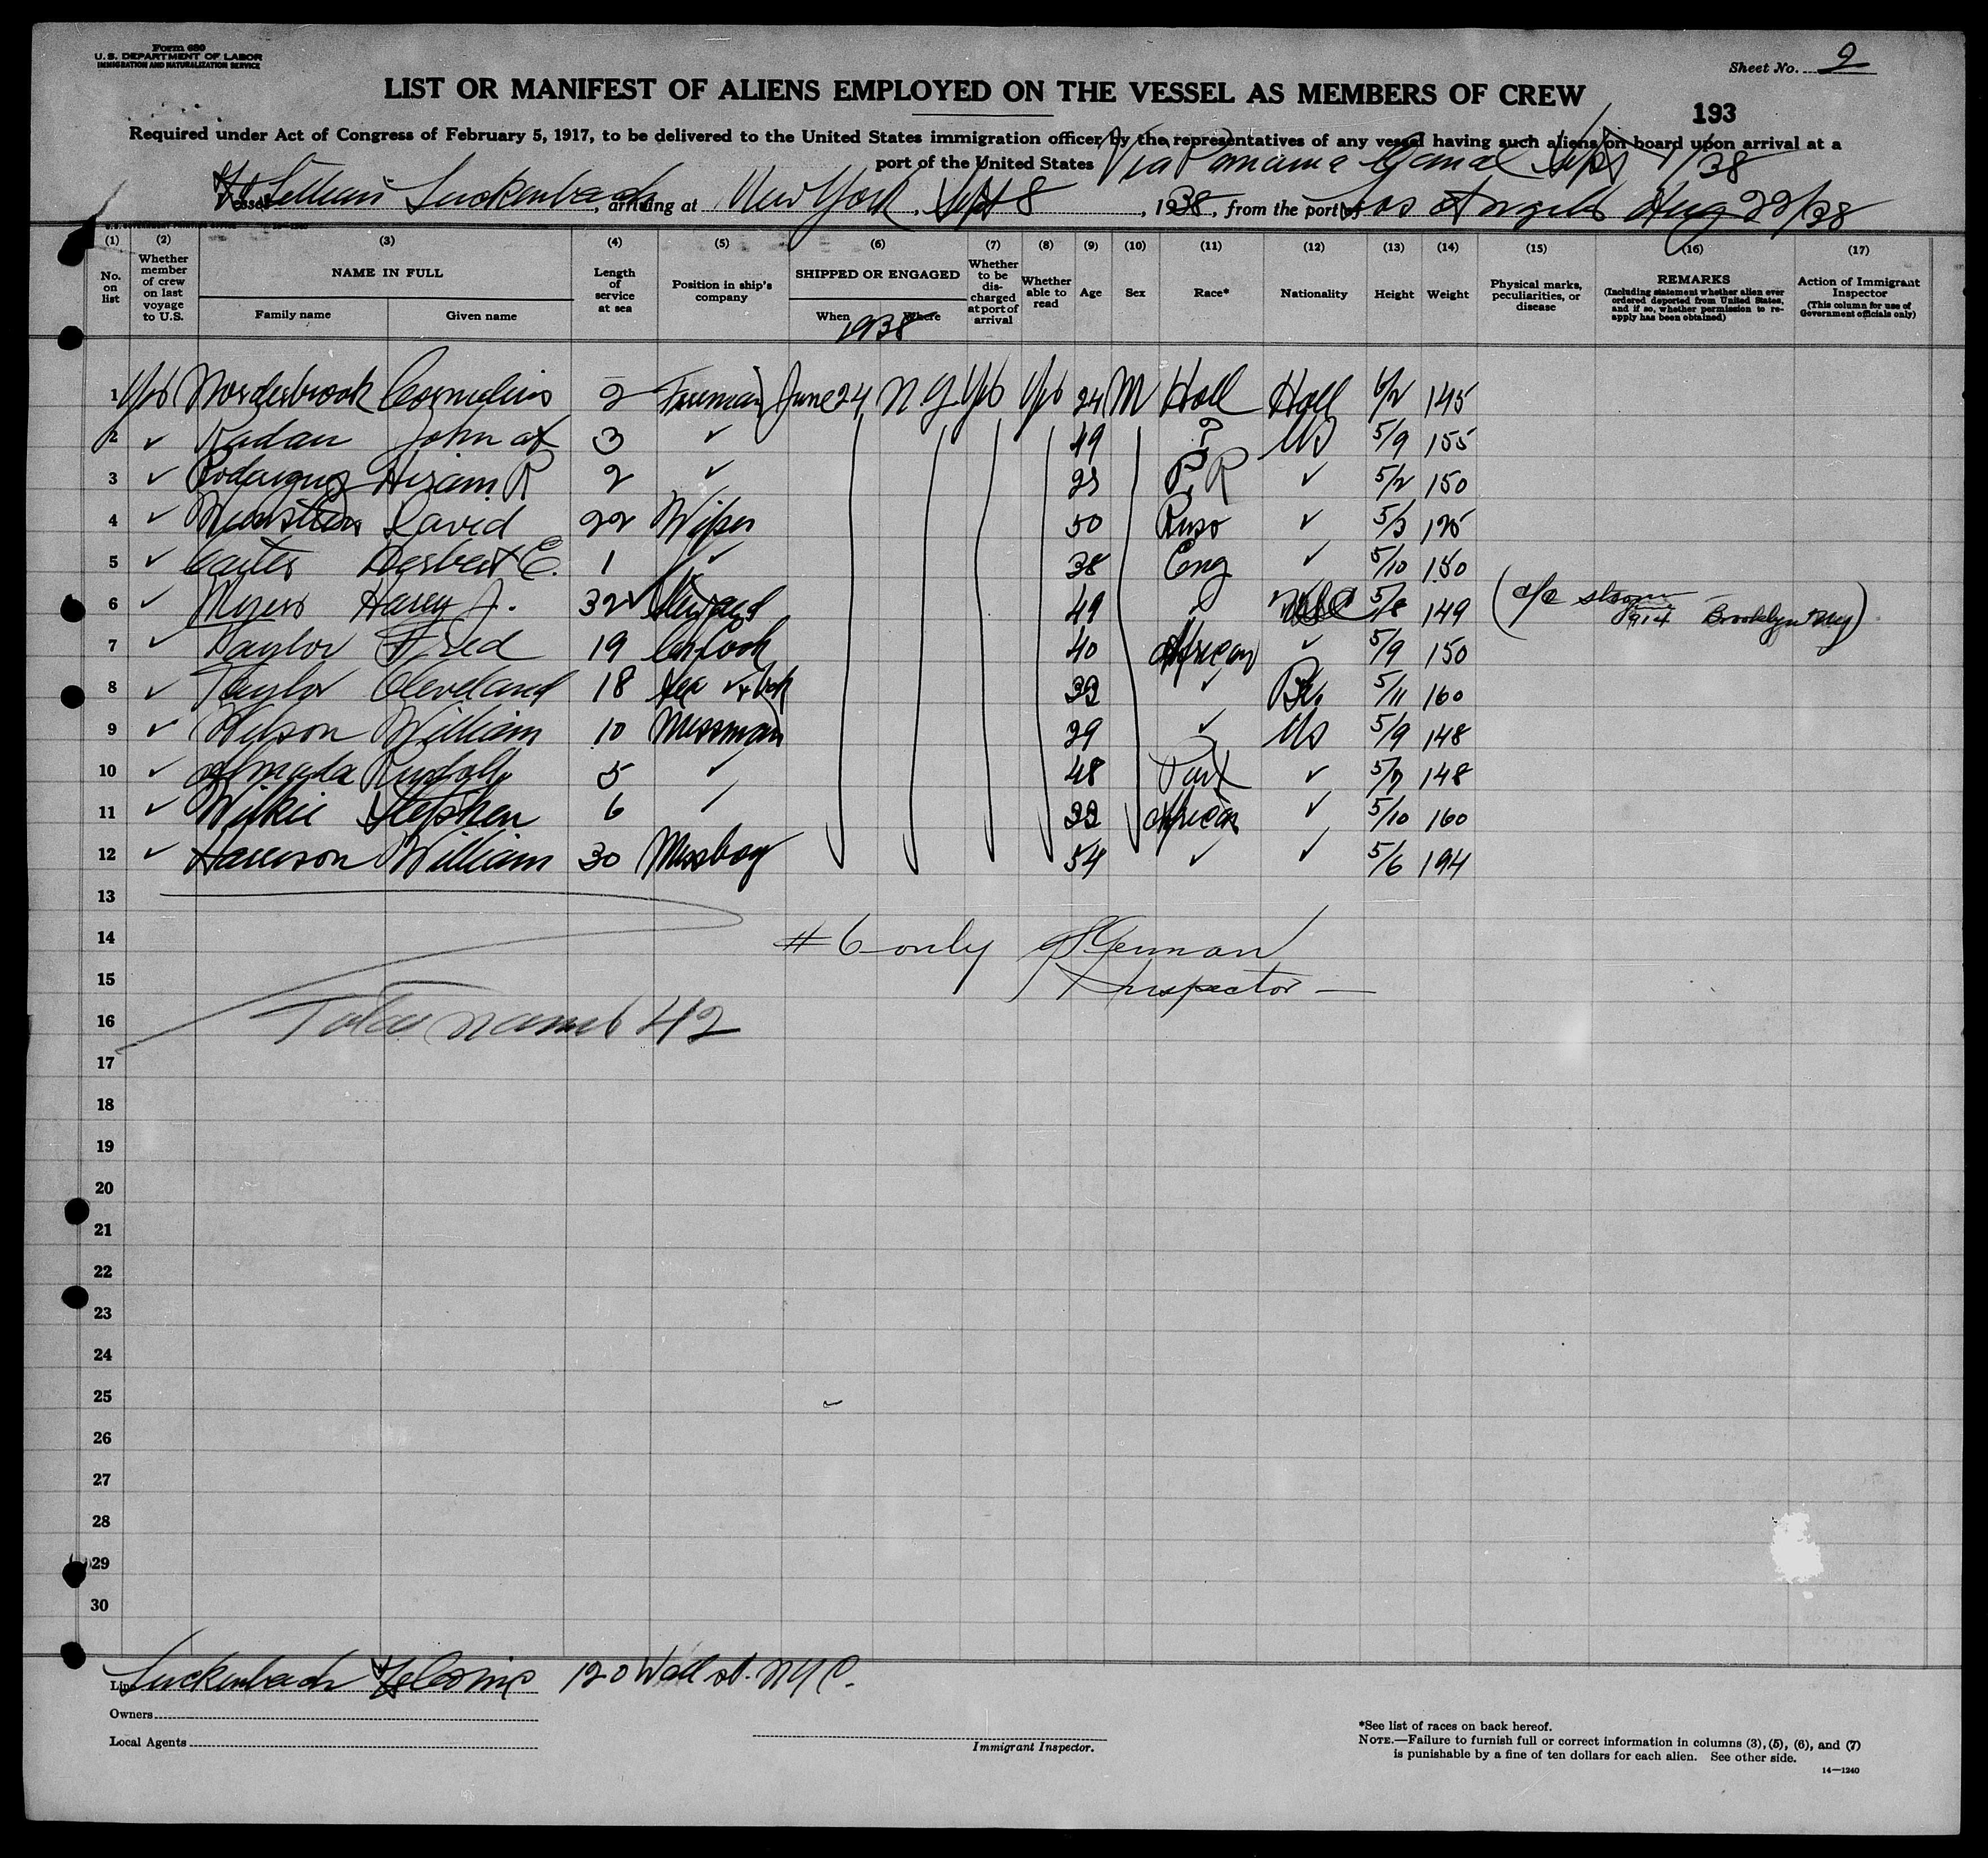 Form 680
U. S. DEPARTMENT OF LABOR
IMMIGRATION AND NATURALIZATION SERVICE
Sheet No. 2
LIST OR MANIFEST OF ALIENS EMPLOYED ON THE VESSEL AS MEMBERS OF CREW
193
Required under Act of Congress of February 5, 1917, to be delivered to the United States immigration officer by the representatives of any vessel having such aliens on board upon arrival at a
port of the United States Via Panama Canal Sept 1/38
Vessel Luckenbach, arriving at New York, Sept 8, 1938, from the port of Los Angeles Aug 22/38
(1) (2) (3) (4) (5) (6) (7) (8) (9) (10) (11) (12) (13) (14) (15) (16) (17)
No. on list
Whether member of crew on last voyage to U.S.
NAME IN FULL
Family name Given name
Length of service at sea
Position in ship's company
SHIPPED OR ENGAGED
When Where
1938
Whether to be discharged at port of arrival
Whether able to read
Age
Sex
Race*
Nationality
Height
Weight
Physical marks, peculiarities, or disease
REMARKS
(Including statement whether alien ever ordered deported from United States, and if so, whether permission to reapply has been obtained)
Action of Immigrant Inspector
(This column for use of Government officials only)
1 Yes Norderbrook Cornelius 2 Fireman June 24 N Y Yes Yes 24 M Holl Holl 6/2 145
2 ✓ Radau John 3 ✓ 49 ? US 5/9 155
3 ✓ Hiram R 2 ✓ P R ✓ 5/2 150
4 ✓ David 22 Wiper 50 Russ ✓ 5/3
5 ✓ Carter Herbert E. 1 ✓ 38 Eng ✓ 5/10 150
6 ✓ Myers Harry J. 32 Steward 49 ✓ 5/8 149 (c/c 1914 Brooklyn NY)
7 ✓ Taylor Fred 19 Ch Cook 40 African ✓ 5/9 150
8 ✓ Taylor Cleveland 18 ✓ Br. 5/11 160
9 ✓ Wilson William 10 Messman ✓ US 5/9 148
10 ✓ Almada Rudolf 5 ✓ 48 Port ✓ 5/7 148
11 ✓ Wilkie Stephen 6 ✓ African ✓ 5/10 160
12 ✓ Harrison William 30 Messboy 54 ✓ ✓ 5/6 194
13
14 #6 only
15 Inspector
16 Total names 42
17
18
19
20
21
22
23
24
25
26
27
28
29
30
Line Luckenbach 120 Wall st. NYC.
Owners
Local Agents
Immigrant Inspector.
*See list of races on back hereof.
NOTE.—Failure to furnish full or correct information in columns (3), (5), (6), and (7)
is punishable by a fine of ten dollars for each alien. See other side.
14—1240